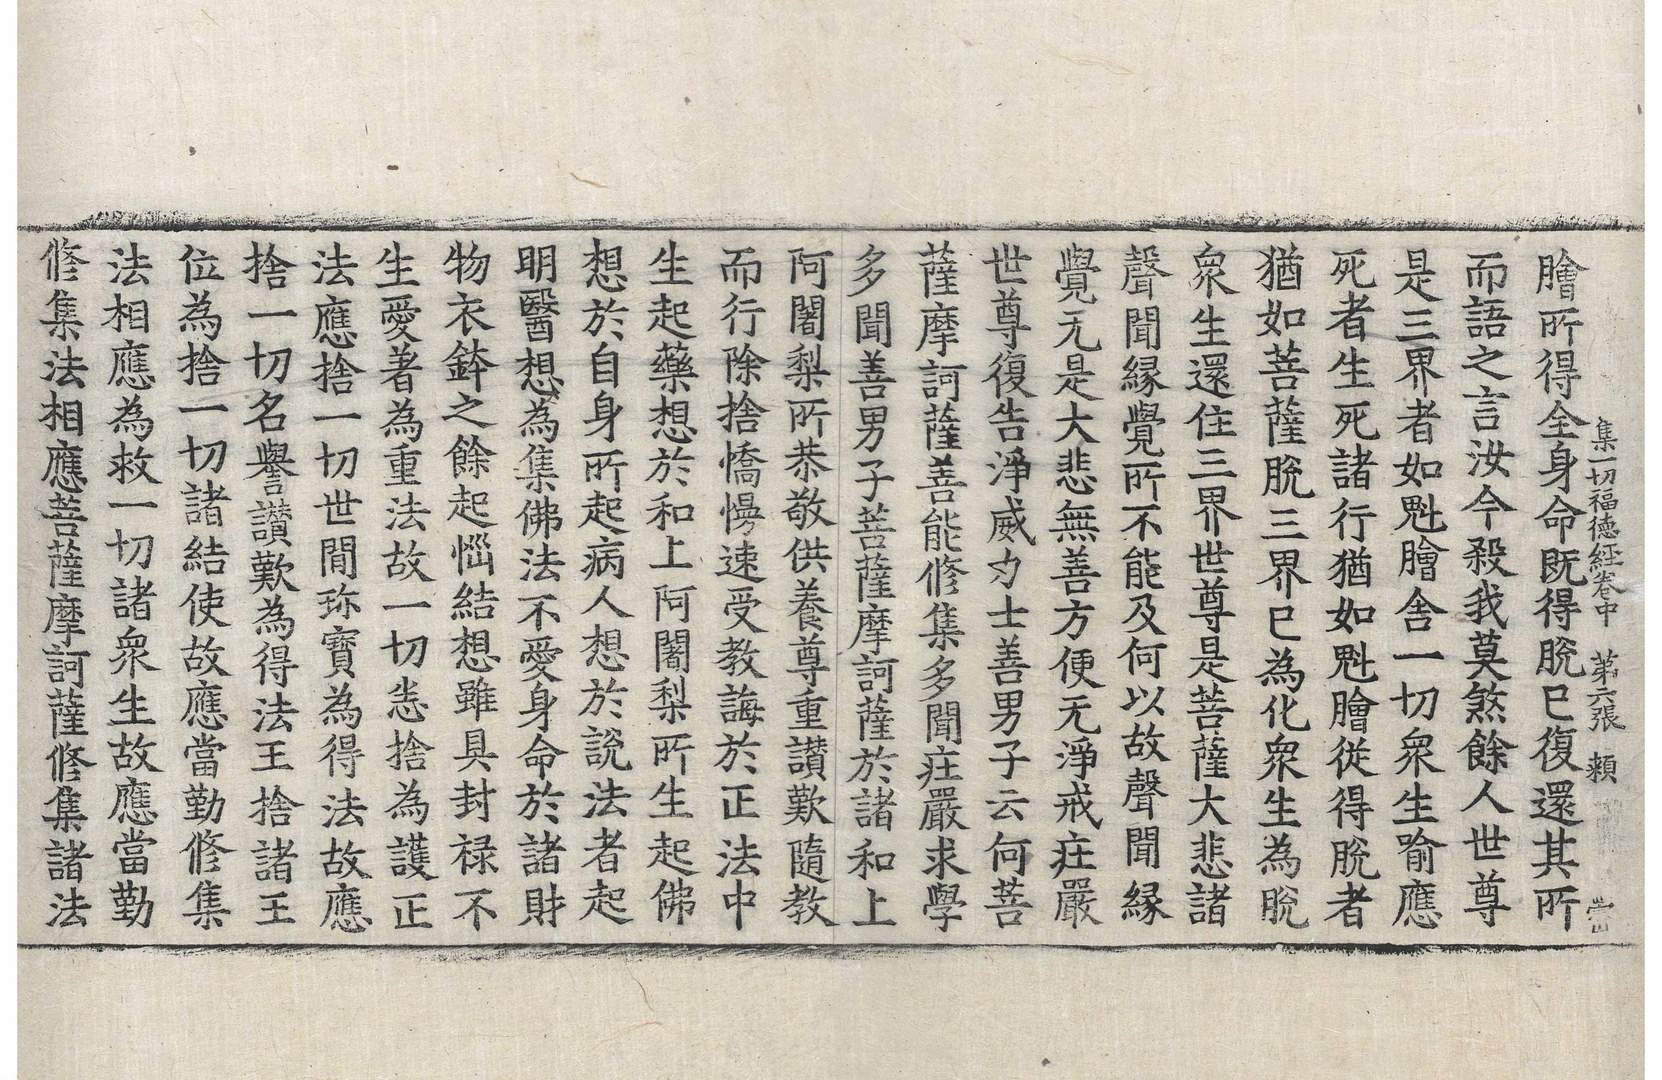 集一切福德經卷中　第六張　賴
膾所得全身命既得脫已復還其所
而語之言汝今殺我莫煞餘人世尊
是三界者如魁膾舍一切衆生喻應
死者生死諸行猶如魁膾從得脫者
猶如菩薩脫三界已為化衆生為脫
衆生還住三界世尊是菩薩大悲諸
聲聞緣覺所不能及何以故聲聞緣
覺无是大悲無善方便无淨戒庄嚴
世尊復告淨威力士善男子云何菩
薩摩訶薩善能修集多聞庄嚴求學
多聞善男子菩薩摩訶薩於諸和上
阿闍梨所恭敬供養尊重讚歎隨教
而行除捨憍慢速受教誨於正法中
生起藥想於和上阿闍梨所生起佛
想於自身所起病人想於說法者起
明醫想為集佛法不愛身命於諸財
物衣鉢之餘起惱結想雖具封禄不
生愛著為重法故一切恚捨為護正
法應捨一切世間珎寶為得法故應
捨一切名譽讚歎為得法王捨諸王
位為捨一切諸結使故應當勤修集
法相應為救一切諸衆生故應當勤
修集法相應菩薩摩訶薩修集諸法